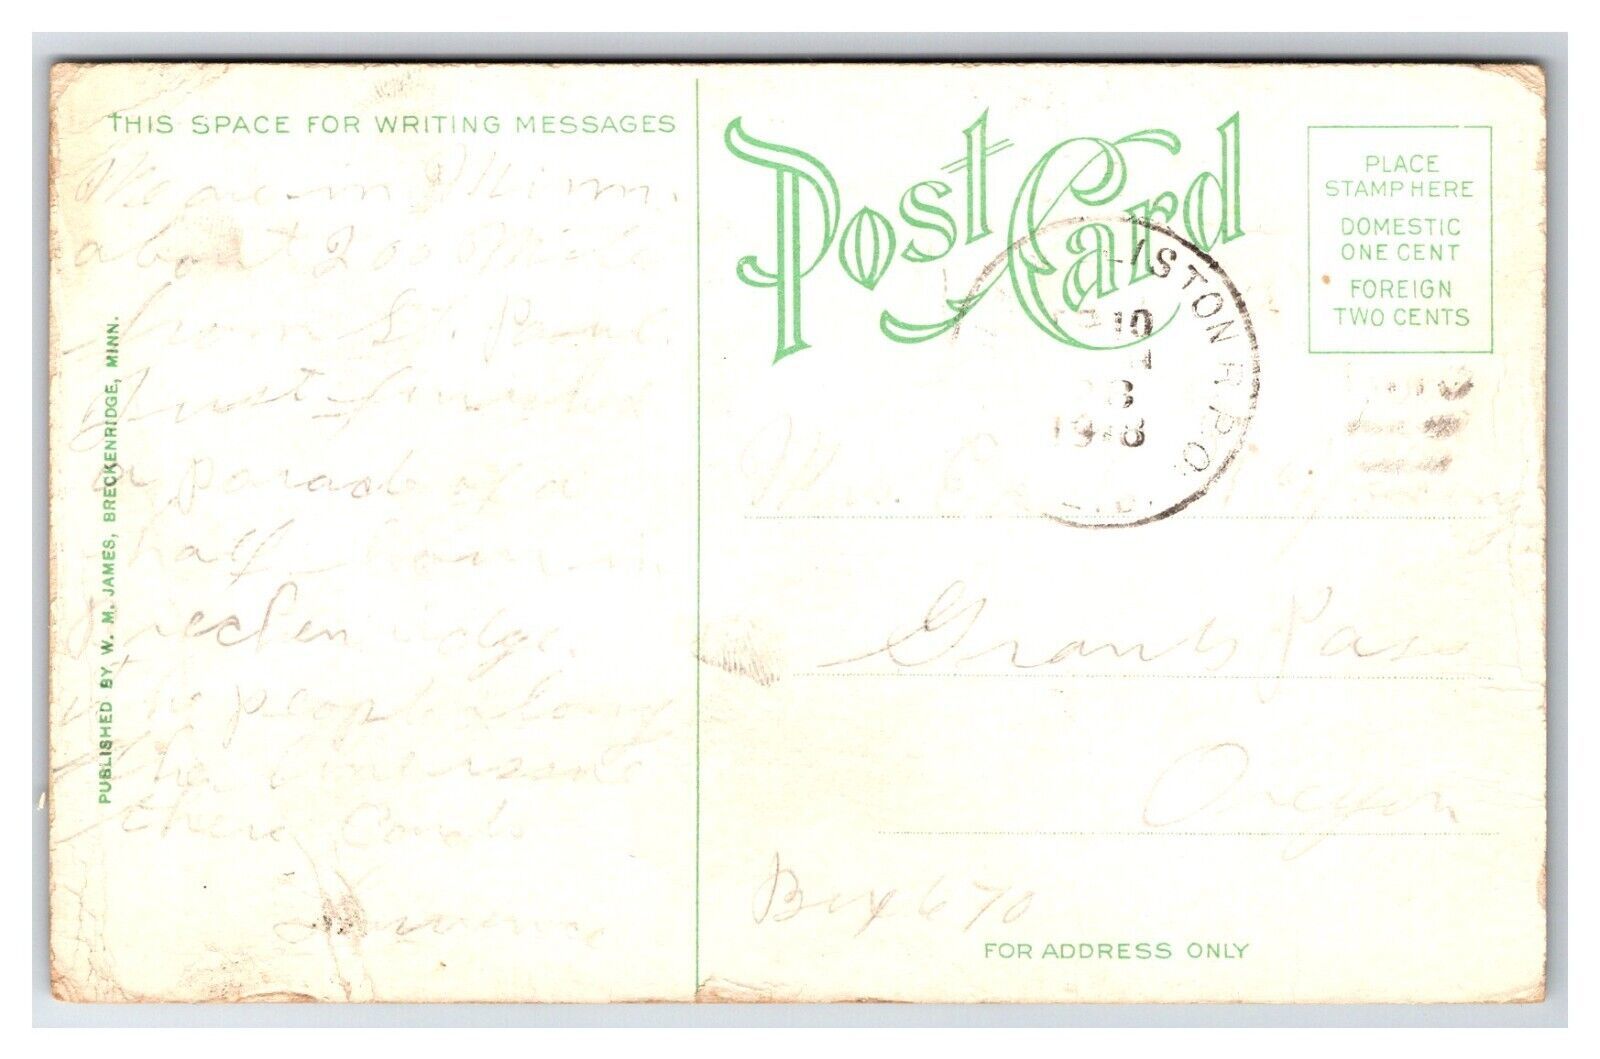 THIS SPACE FOR WRITING MESSAGES
We are in Minn.
about 200 Mile
from St. Paul.
Just finished
a parade of a
half hour in
Breckenridge.
The people along
the line send
these Cards
PUBLISHED BY W. M. JAMES, BRECKENRIDGE, MINN.
Post Card
PLACE
STAMP HERE
DOMESTIC
ONE CENT
FOREIGN
TWO CENTS
LISTON R.P.O.
10
1918
Mrs.
Grants Pass
Oregon
Box 670
FOR ADDRESS ONLY